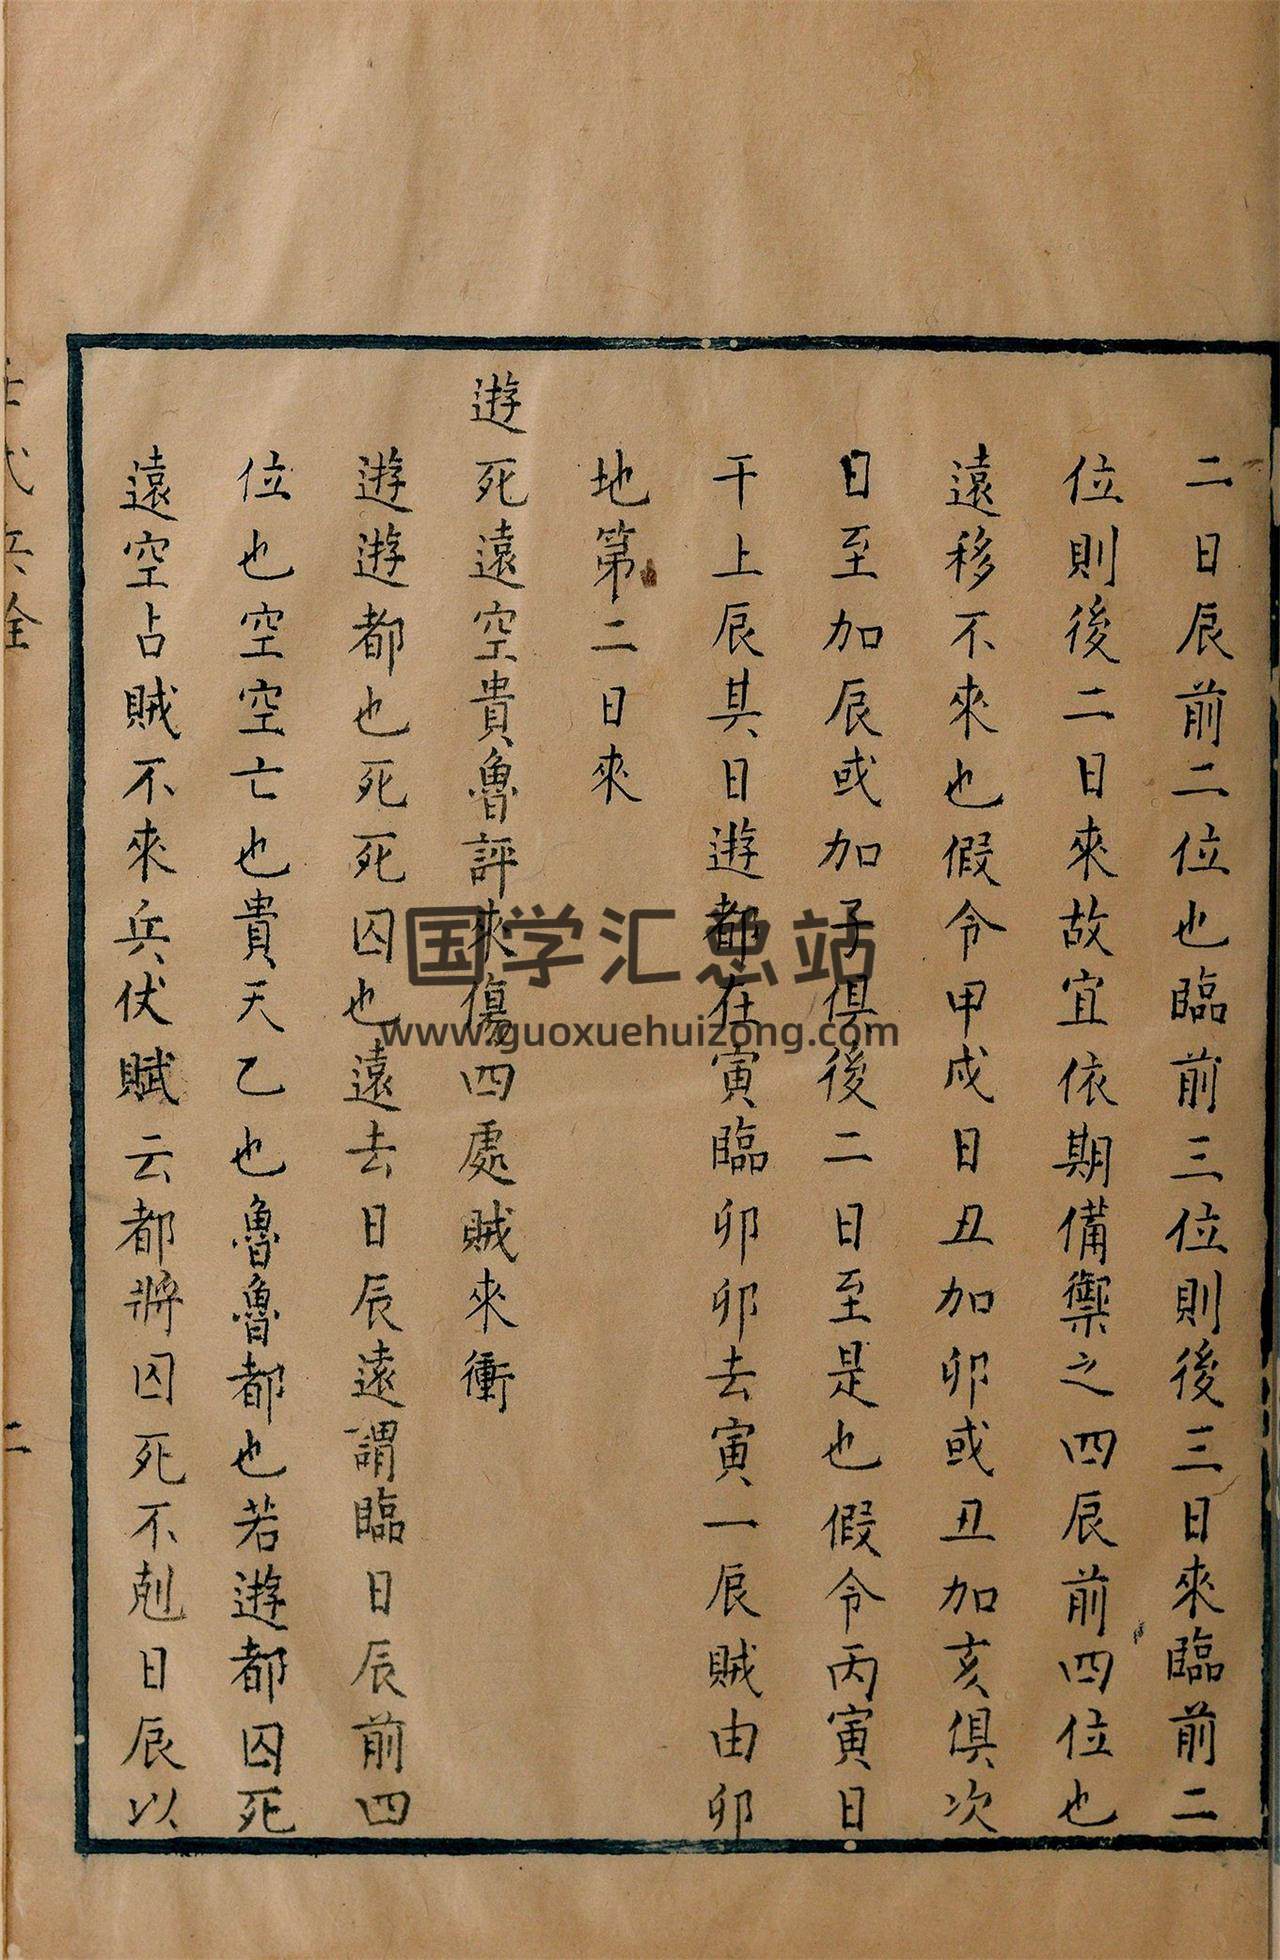 二日辰前二位也臨前三位則後三日來臨前二
位則後二日來故宜依期備禦之四辰前四位也
遠移不來也假令甲戌日丑加卯或丑加亥俱次
日至加辰或加子俱後二日至是也假令丙寅日
干上辰其日遊都在寅臨卯卯去寅一辰賊由卯
地第二日來
遊死遠空貴魯評來傷四處賊來衝
遊遊都也死死囚也遠去日辰遠謂臨日辰前四
位也空空亡也貴天乙也魯魯都也若遊都囚死
遠空占賊不來兵伏賦云都將囚死不剋日辰以
式兵詮
二
国学汇总站
www.guoxuehuizong.com